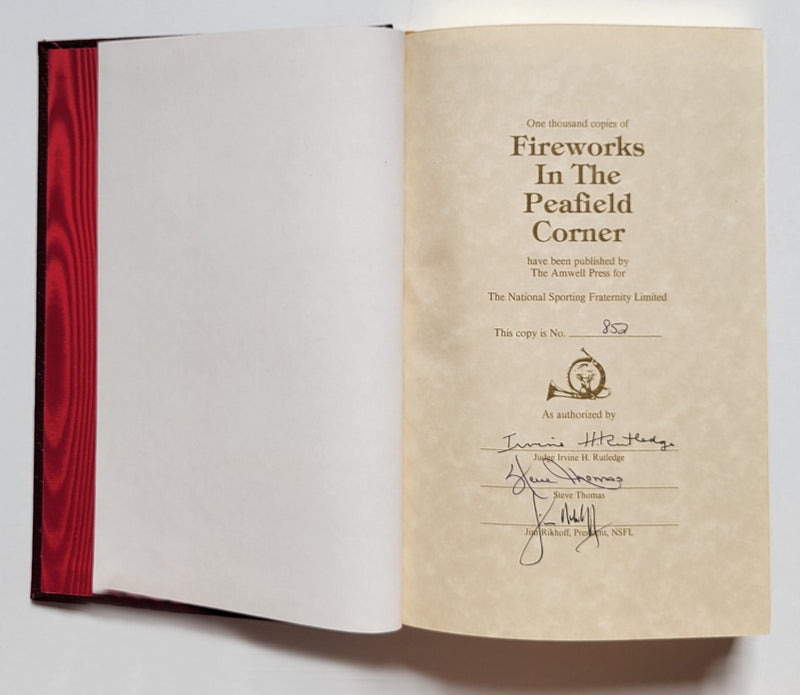 One thousand copies of
Fireworks
In The
Peafield
Corner
have been published by
The Amwell Press for
The National Sporting Fraternity Limited
This copy is No. 852
As authorized by
Irvine H. Rutledge
Judge Irvine H. Rutledge
Steve Thomas
Steve Thomas
Jim Rikhoff
Jim Rikhoff, President, NSFL